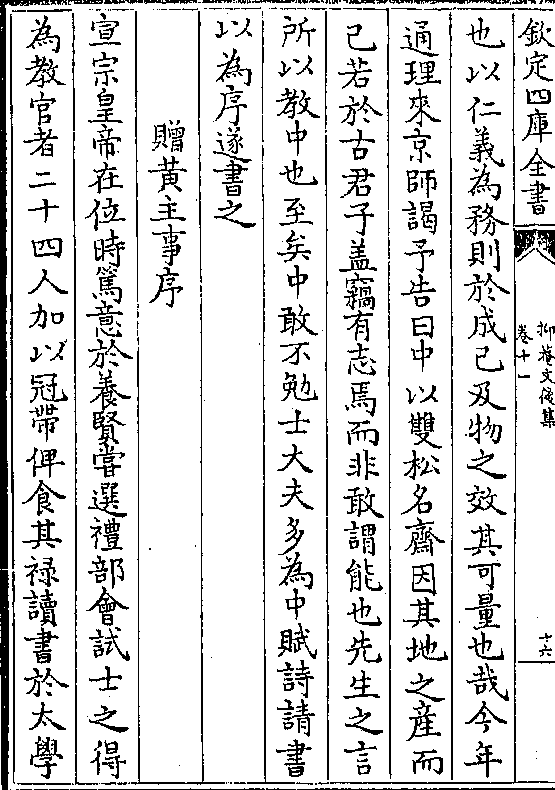 欽定四庫全書
抑菴文後集
卷十一
十六
也以仁義為務則於成己及物之效其可量也哉今年
通理來京師謁予告曰中以雙松名齋因其地之産而
已若於古君子盖竊有志焉而非敢謂能也先生之言
所以教中也至矣中敢不勉士大夫多為中賦詩請書
以為序遂書之
贈黄主事序
宣宗皇帝在位時篤意於養賢嘗選禮部會試士之得
為教官者二十四人加以冠帶俾食其禄讀書於太學